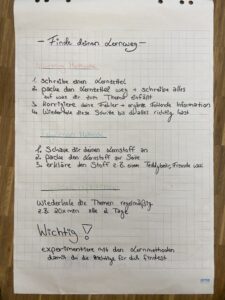 - Finde deinen Lernweg -
Methode
1. schreibe einen Lernzettel
2. packe den Lernzettel weg + schreibe alles
auf was dir zum Thema einfällt
3. Korrigiere deine Fehler + ergänze fehlende Information
4. Wiederhole diese Schritte bis du alles richtig hast
Methode
1. Schaue dir deinen Lernstoff an
2. packe den Lernstoff zur Seite
3. erkläre den Stoff z.B. einem Teddybär, Freunde
Wiederhole die Themen regelmäßig
z.B. alle 2 Tage
Wichtig!
experimentiere mit den Lernmethoden
damit du die Richtige für dich findest